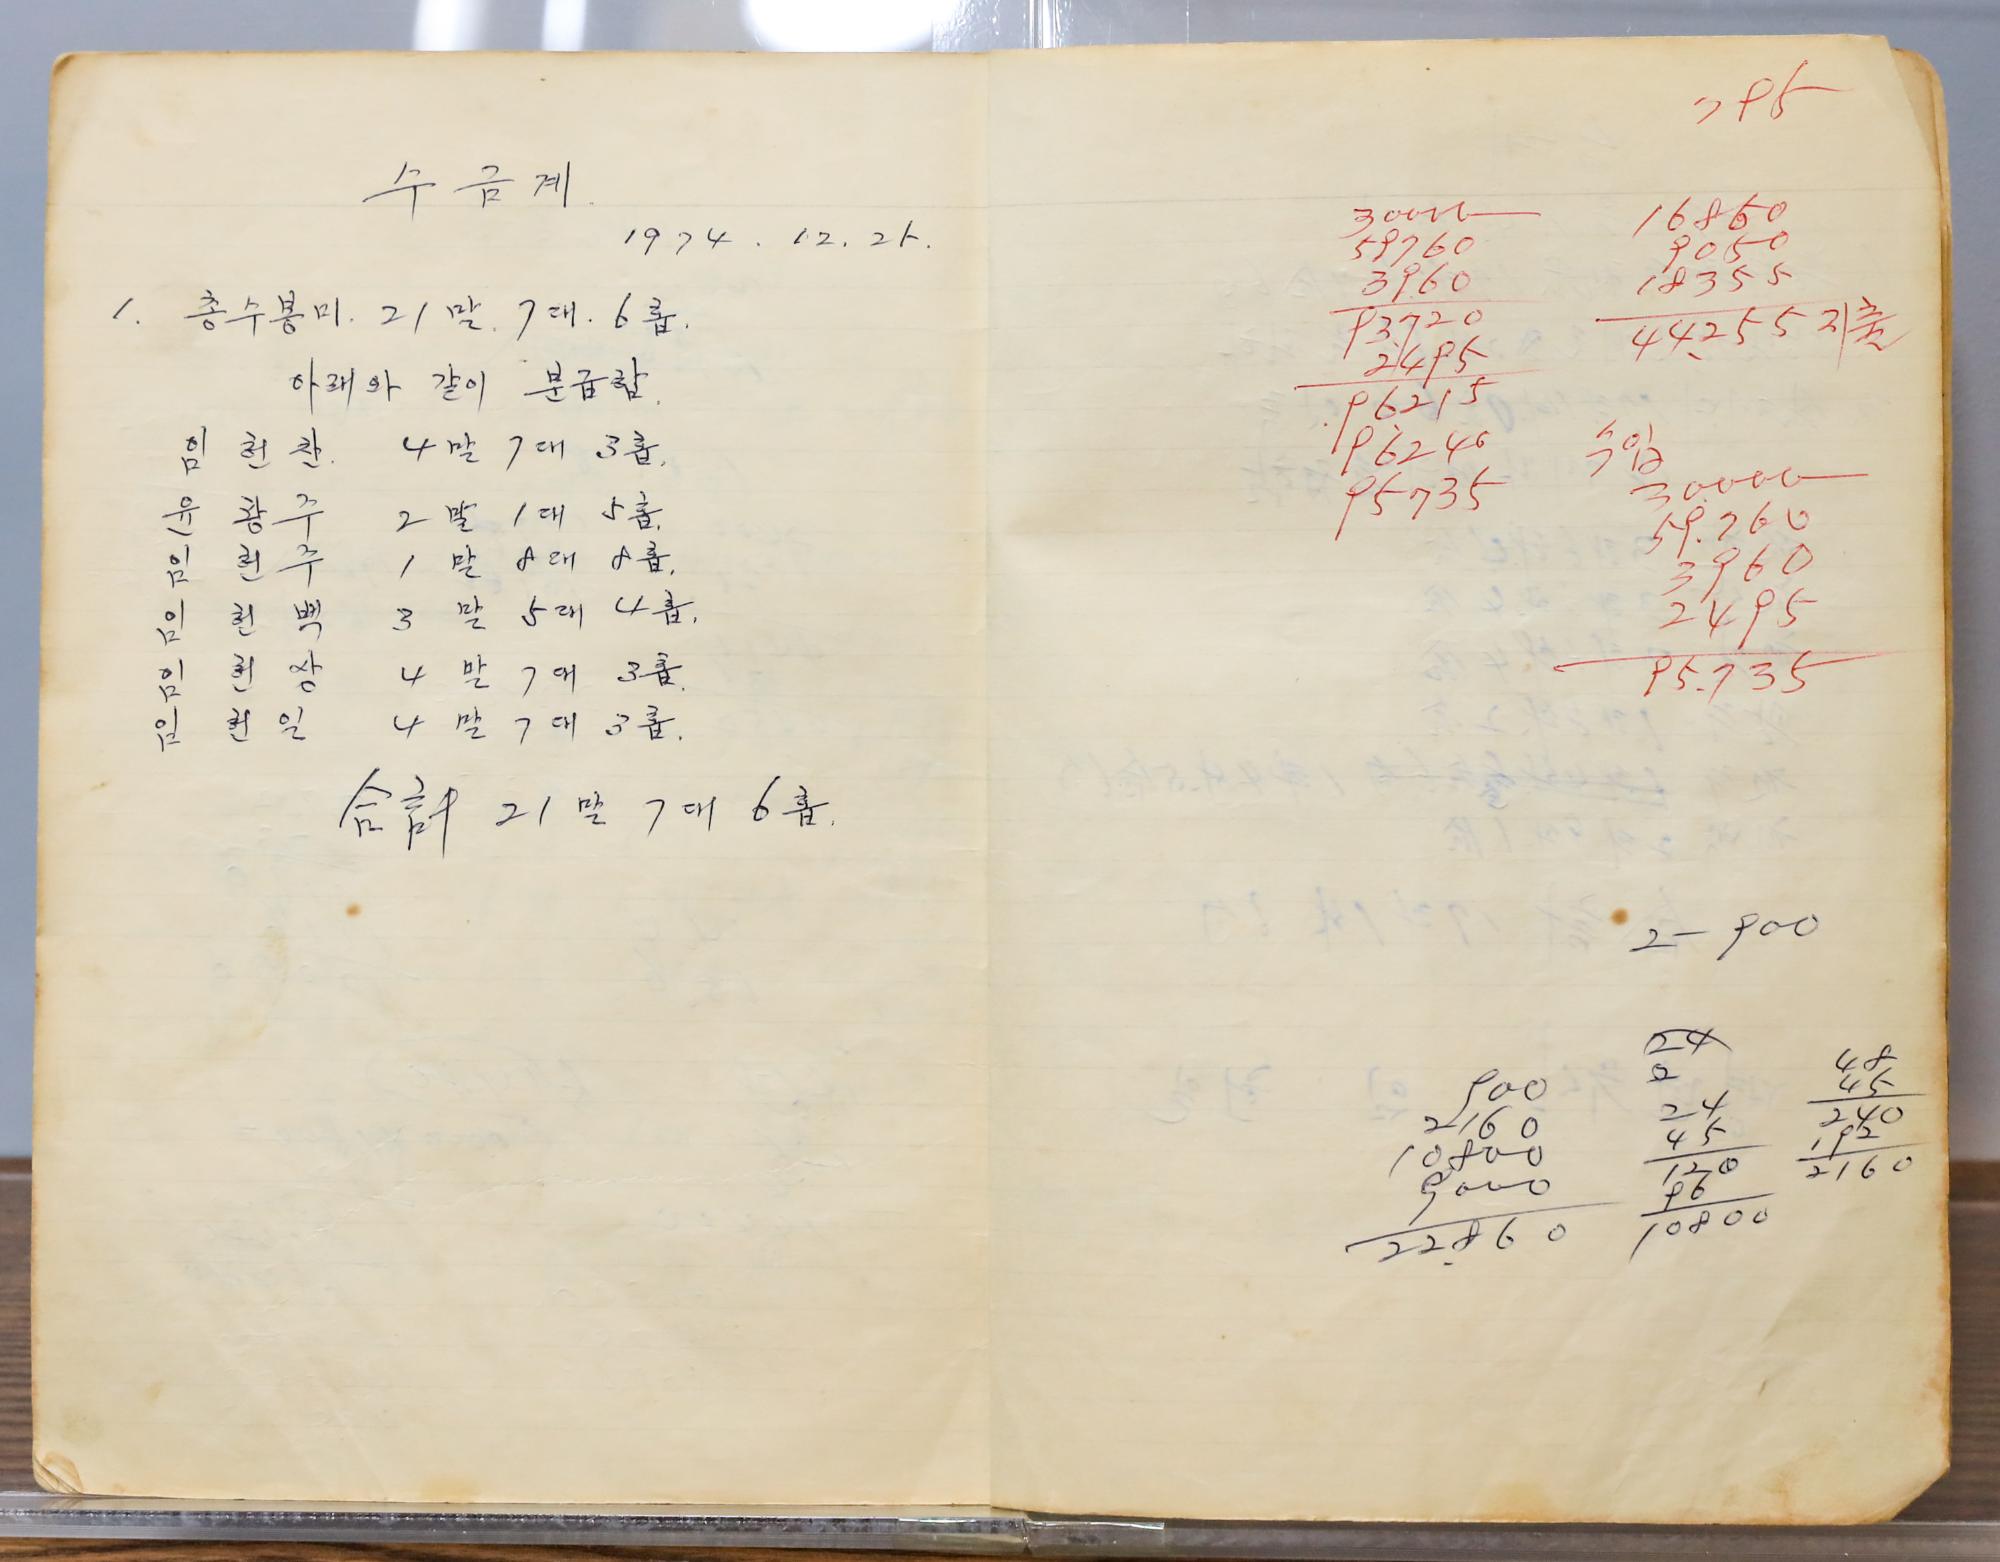 수금계.
1974. 12. 25.
1. 총수봉미. 21말. 7대. 6홉.
아래와 같이 분급함.
임헌찬. 4말 7대 3홉.
윤황주 2말 1대 5홉.
임헌주 1말 8대 8홉.
임헌백 3말 5대 4홉.
임헌상 4말 7대 3홉.
임헌일 4말 7대 3홉.
合計 21말 7대 6홉.
795
30000
59760
3960
93.720
2495
96215
96240
95735
16860
9050
18355
44.255 지출
수입
30000
59.760
3960
2495
95.735
2-900
900
2160
10800
9000
22.860
24
2
24
45
120
96
10800
48
45
240
192
2160